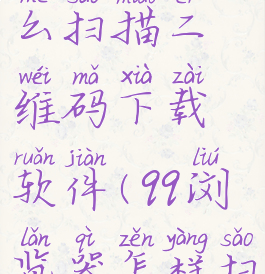 me sǎo miáo èr
么扫描二
wéi mǎ xià zài
维码下载
ruǎn jiàn liú
软件(99浏
lǎn qì zěn yàng sǎo
览器怎样扫